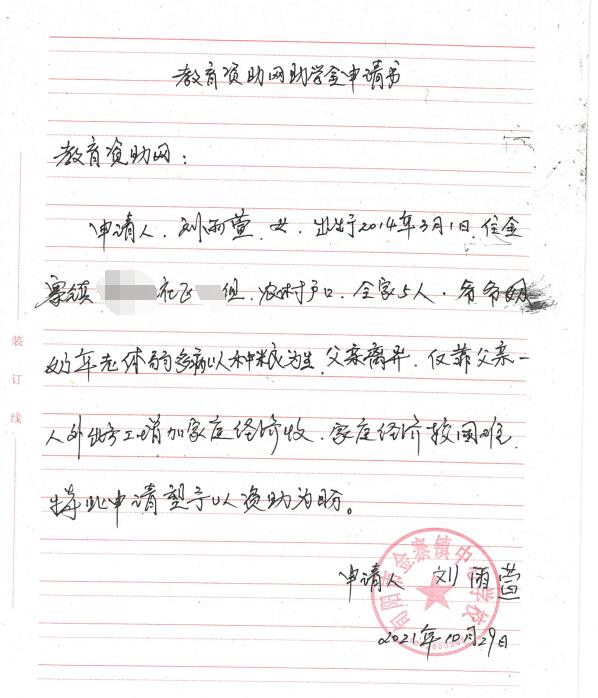 教育资助网助学金申请书
教育资助网:
申请人.刘雨萱.女.出生于2014年3月1日.住金
寨镇 社区 组.农村户口.全家5人.爷爷
奶年老体弱多病以种粮为生.父亲离异.仅靠父亲一
人外出务工增加家庭经济收.家庭经济较困难.
特此申请望予以资助为盼。
申请人 刘雨萱
2021年10月29日
装订线
市金寨镇中心学校